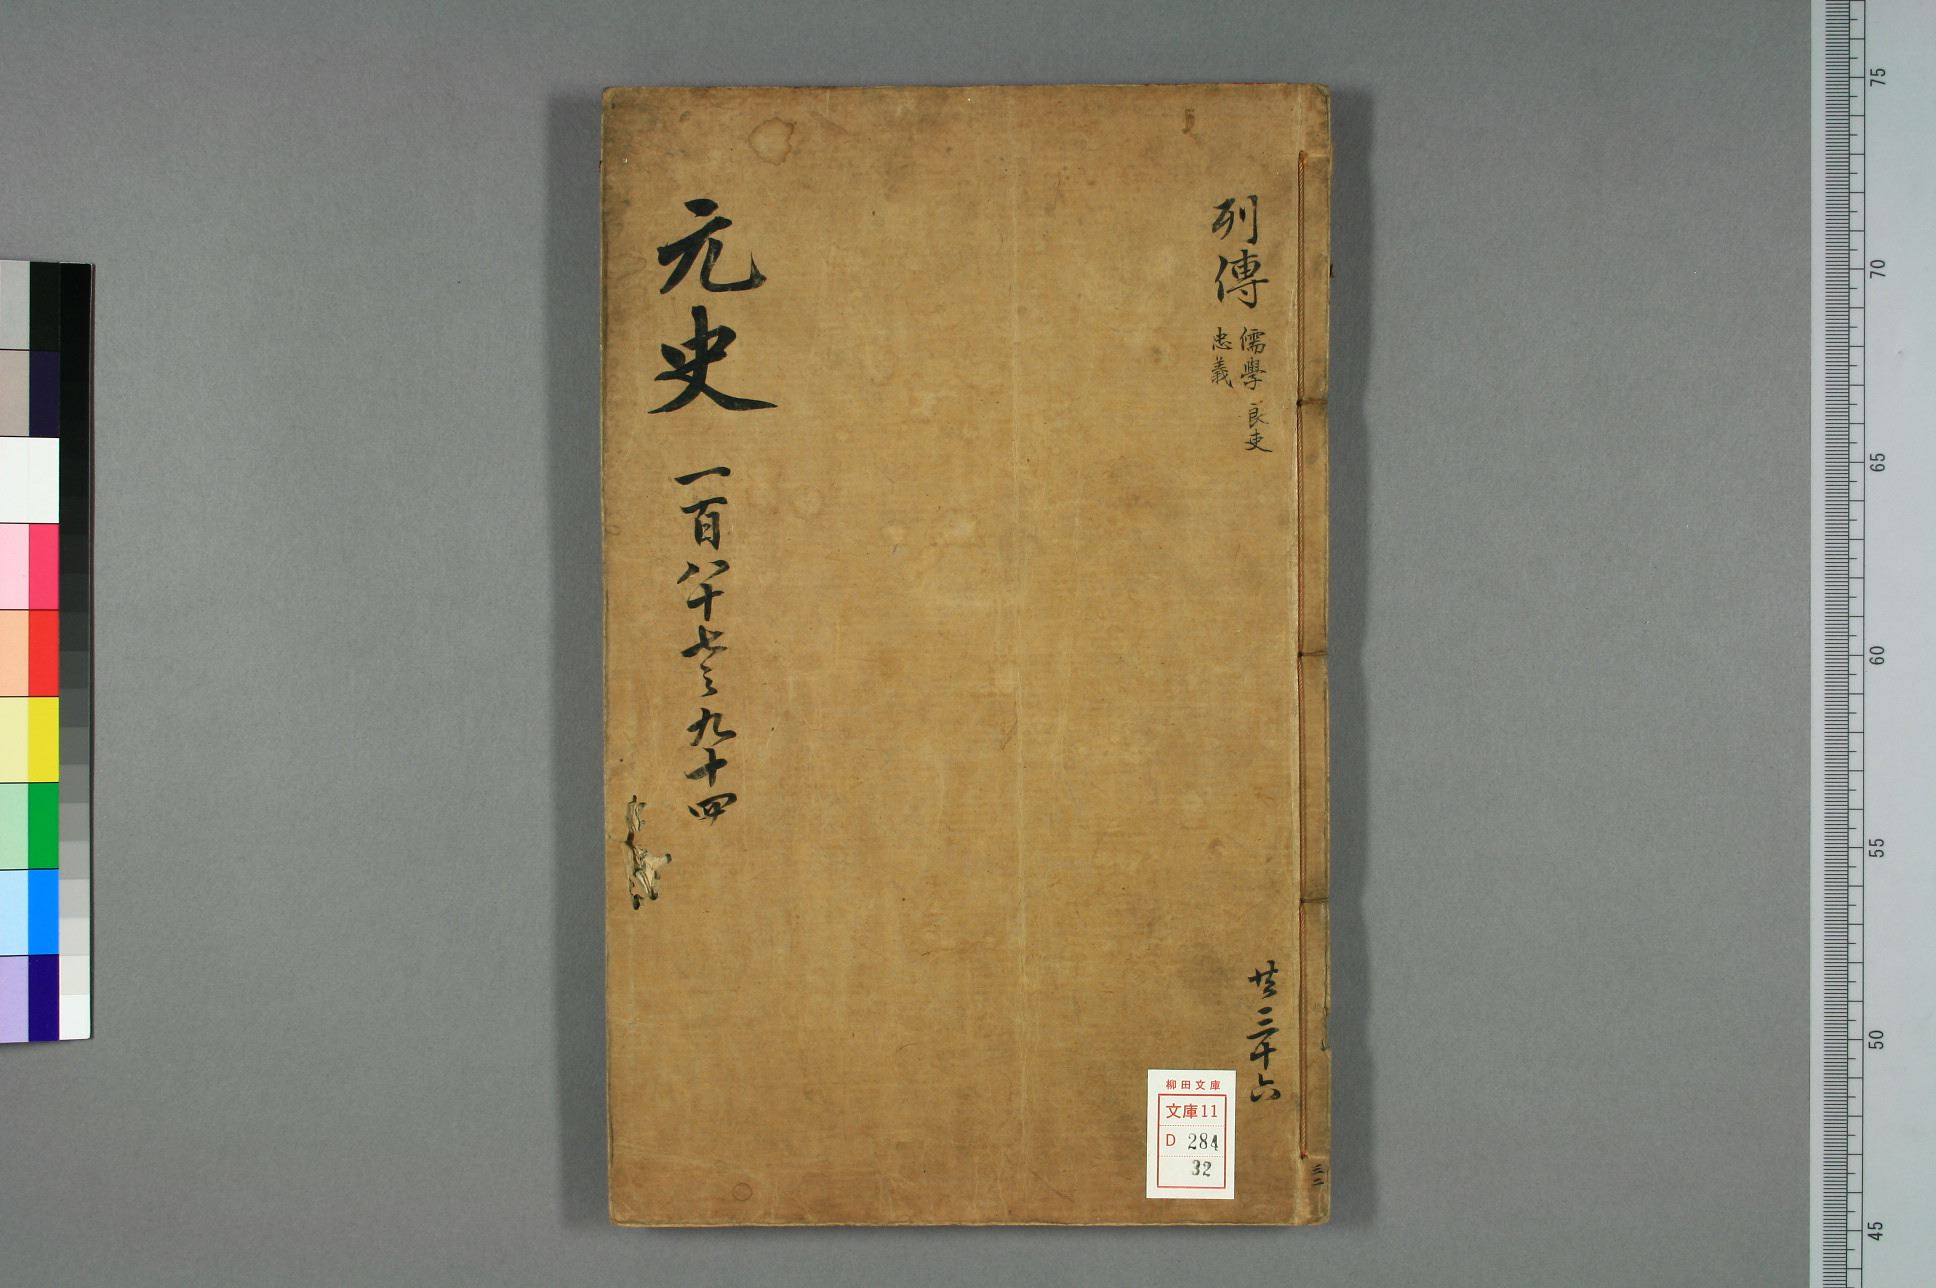 列傳
儒學 良吏
忠義
元史 一百八十七之九十四
共三十六
三二
柳田文庫
文庫11
D 284
32
75
70
65
60
55
50
45